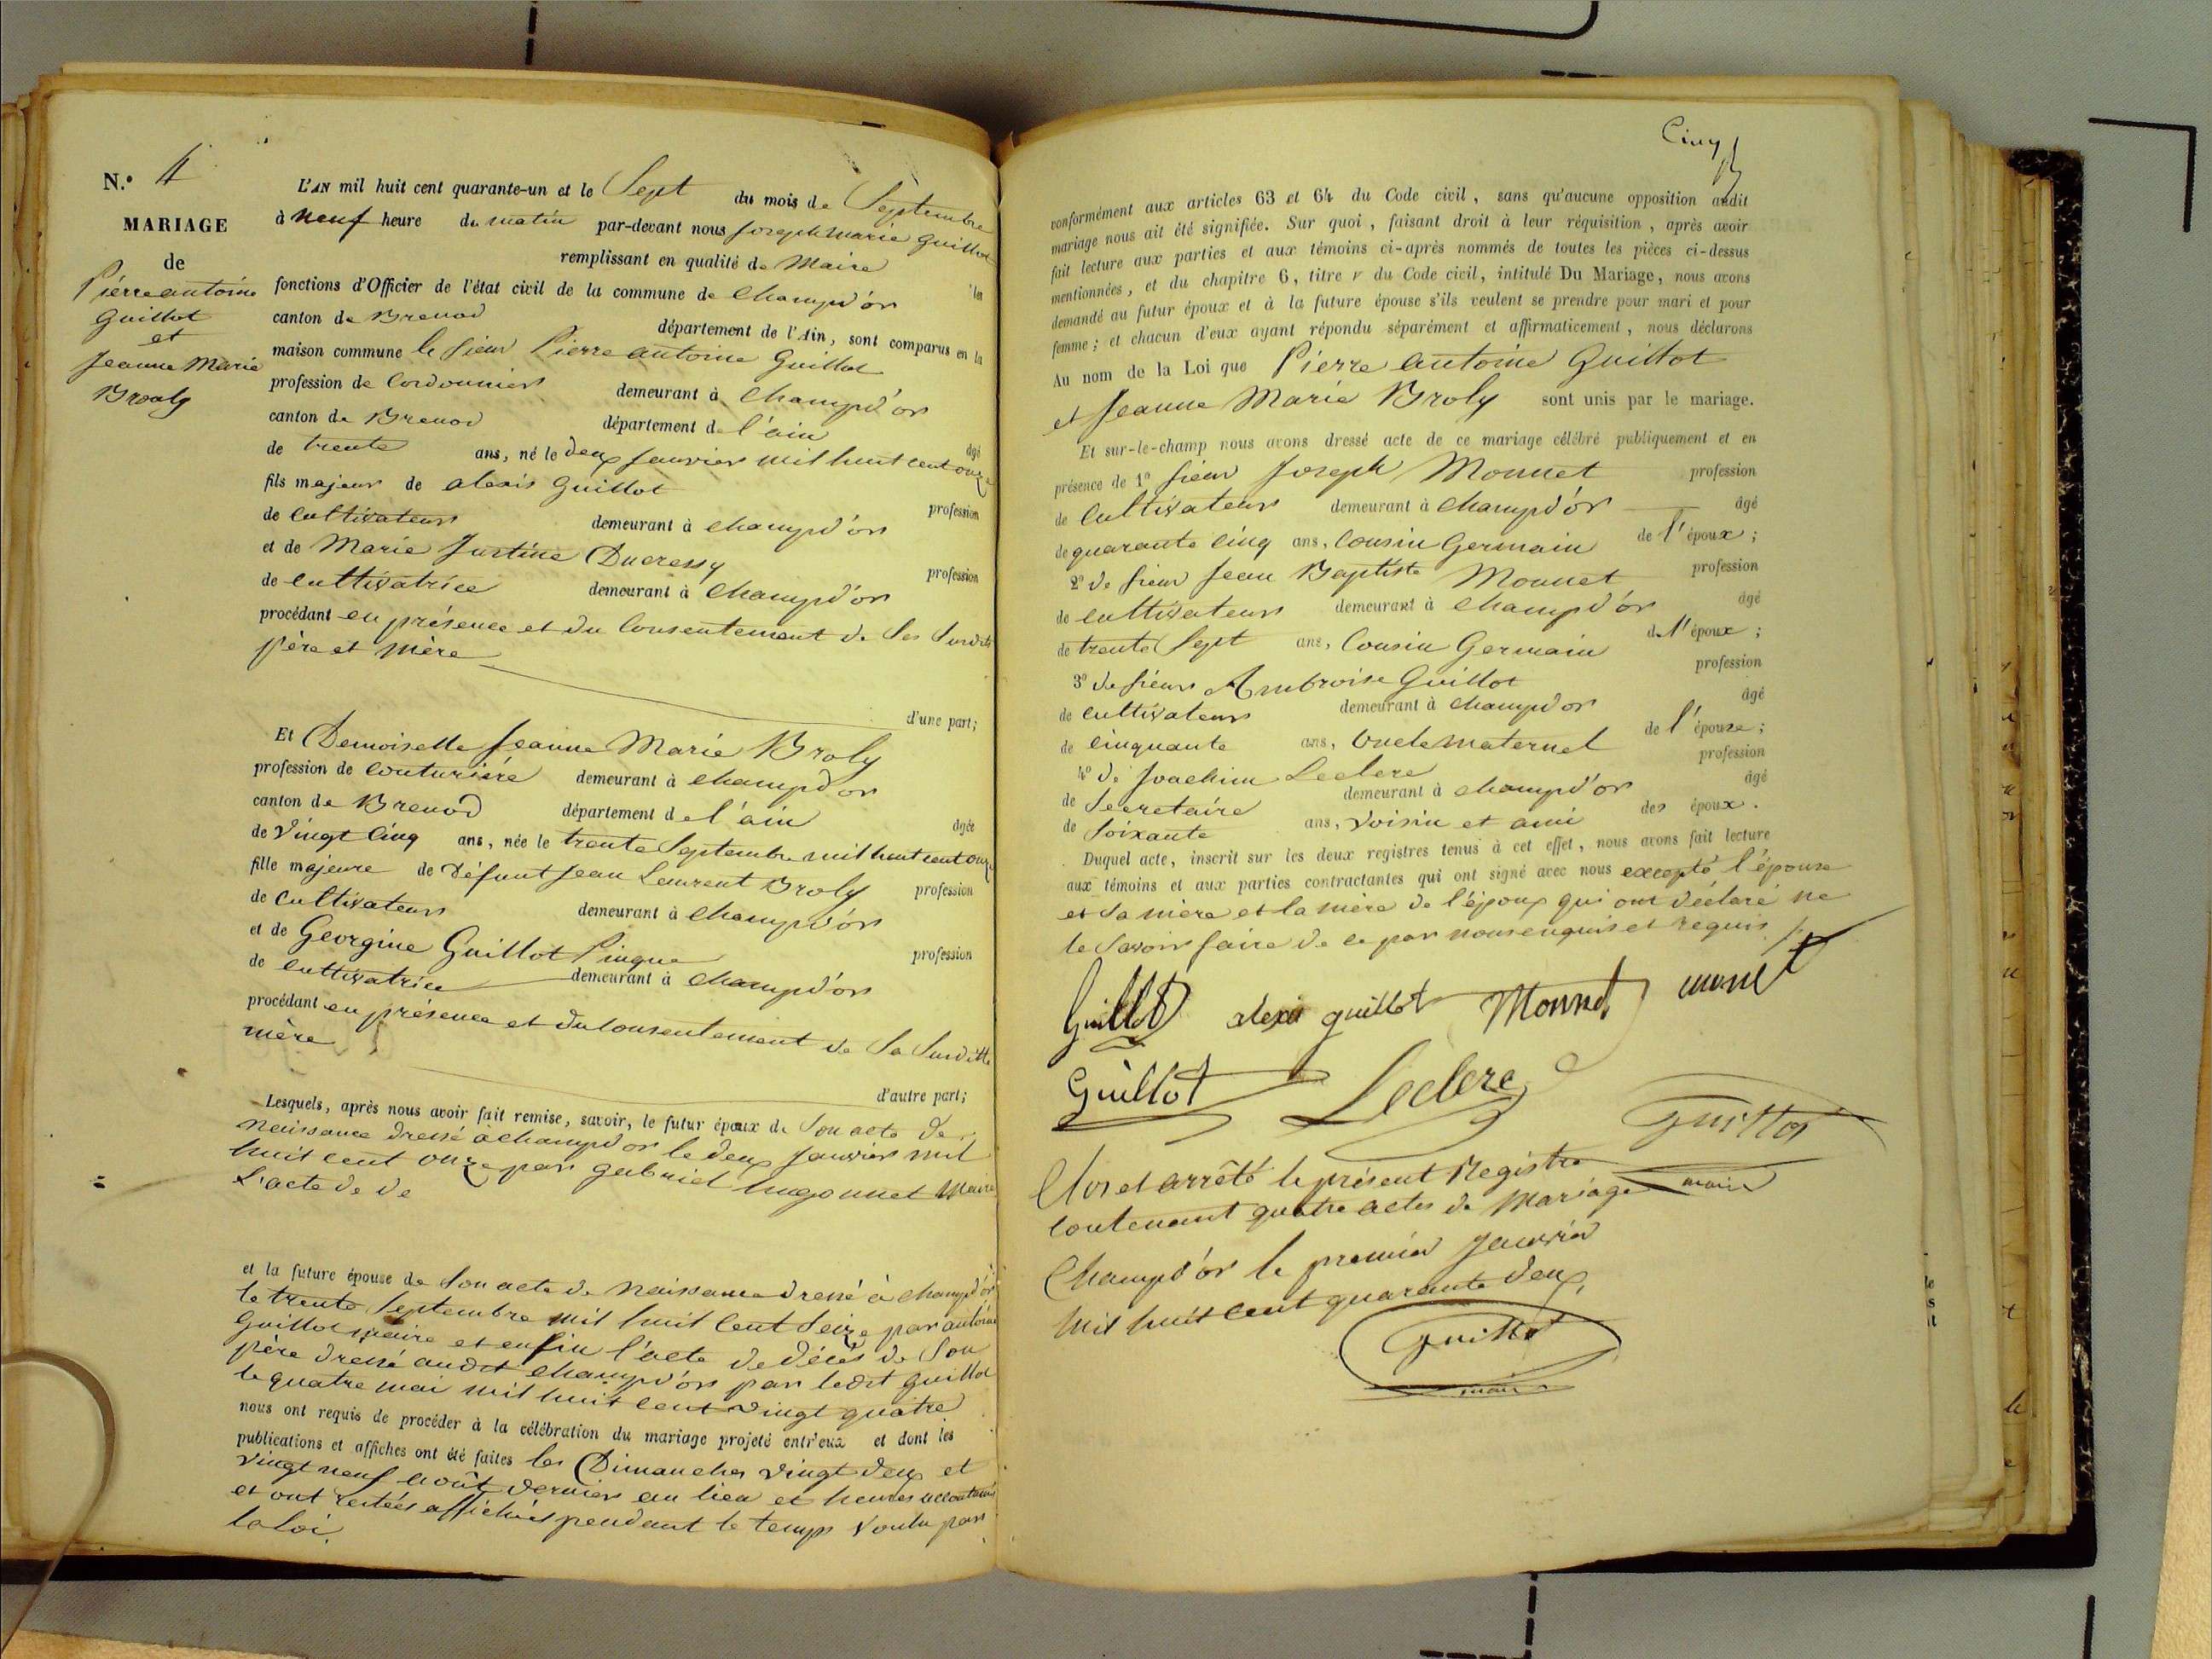 N.o 4
MARIAGE
de
Pierre antoine
Guillot
et
Jeanne Marie
Broly
L'AN mil huit cent quarante-un et le Sept du mois de Septembre
à neuf heure du matin par-devant nous Joseph marie Guillot
remplissant en qualité de Maire les
fonctions d'Officier de l'état civil de la commune de Champd'or
canton de Brenod département de l'Ain, sont comparus en la
maison commune le sieur Pierre antoine Guillot
profession de Cordonnier demeurant à Champd'or
canton de Brenod département de l'ain
de trente ans, né le deux Janvier mil huit cent onze âgé
fils majeur de alexis Guillot
de Cultivateur demeurant à Champd'or profession
et de Marie Justine Ducressy
de cultivatrice demeurant à Champd'or profession
procédant en présence et du Consentement de Ses Susdits
père et mère
d'une part;
Et Demoiselle Jeanne Marie Broly
profession de Couturière demeurant à Champd'or
canton de Brenod département de l'ain
de Vingt Cinq ans, née le trente Septembre mil huit cent onze âgée
fille majeure de défunt Jean Laurent Broly
de Cultivateur demeurant à Champd'or profession
et de Georgine Guillot Pingue
de Cultivatrice demeurant à Champd'or profession
procédant en présence et du Consentement de Sa Susditte
mère
d'autre part;
Lesquels, après nous avoir fait remise, savoir, le futur époux de Son acte de
naissance dressé à Champd'or le deux Janvier mil
huit cent onze par gabriel hugonnet Maire
L'acte de de
et la future épouse de Son acte de naissance dressé à Champd'or
le trente Septembre mil huit Cent Seize par antoine
Guillot maire et enfin l'acte de décès de Son
père dressé audit Champd'or par ledit Guillot
le quatre mai mil huit Cent vingt quatre
nous ont requis de procéder à la célébration du mariage projeté entr'eux et dont les
publications et affiches ont été faites les Dimanches vingt deux et
vingt neuf août dernier au lieu et heures accoutumé
et ont restées affichées pendant le temps Voulu par
la loi.
Cinq
conformément aux articles 63 et 64 du Code civil, sans qu'aucune opposition audit
mariage nous ait été signifiée. Sur quoi, faisant droit à leur réquisition, après avoir
fait lecture aux parties et aux témoins ci-après nommés de toutes les pièces ci-dessus
mentionnées, et du chapitre 6, titre v du Code civil, intitulé Du Mariage, nous avons
demandé au futur époux et à la future épouse s'ils veulent se prendre pour mari et pour
femme; et chacun d'eux ayant répondu séparément et affirmativement, nous déclarons
Au nom de la Loi que Pierre antoine Guillot
et Jeanne Marie Broly sont unis par le mariage.
Et sur-le-champ nous avons dressé acte de ce mariage célébré publiquement et en
présence de 1o sieur Joseph Monnet profession
de Cultivateur demeurant à Champd'or âgé
de quarante Cinq ans, Cousin Germain de l'époux;
2o de sieur Jean Baptiste Monnet profession
de cultivateur demeurant à Champd'or âgé
de trente Sept ans, Cousin Germain de l'époux;
3o de sieur Ambroise Guillot profession
de cultivateur demeurant à Champd'or âgé
de Cinquante ans, Oncle maternel de l'épouse;
4o de Joachim Leclerc profession
de Secretaire demeurant à Champd'or âgé
de Soixante ans, Voisin et ami des époux.
Duquel acte, inscrit sur les deux registres tenus à cet effet, nous avons fait lecture
aux témoins et aux parties contractantes qui ont signé avec nous excepté l'épouse
et Sa mère et la mère de l'époux qui ont déclaré ne
le Savoir faire de ce par nous enquis et requis
Guillot alexis guillot Monnet monet
Guillot Leclerc Guillot
maire
Clos et arrêté le présent Registre
Contenant quatre actes de Mariage
Champd'or le premier Janvier
Mil huit Cent quarante deux,
Guillot
maire